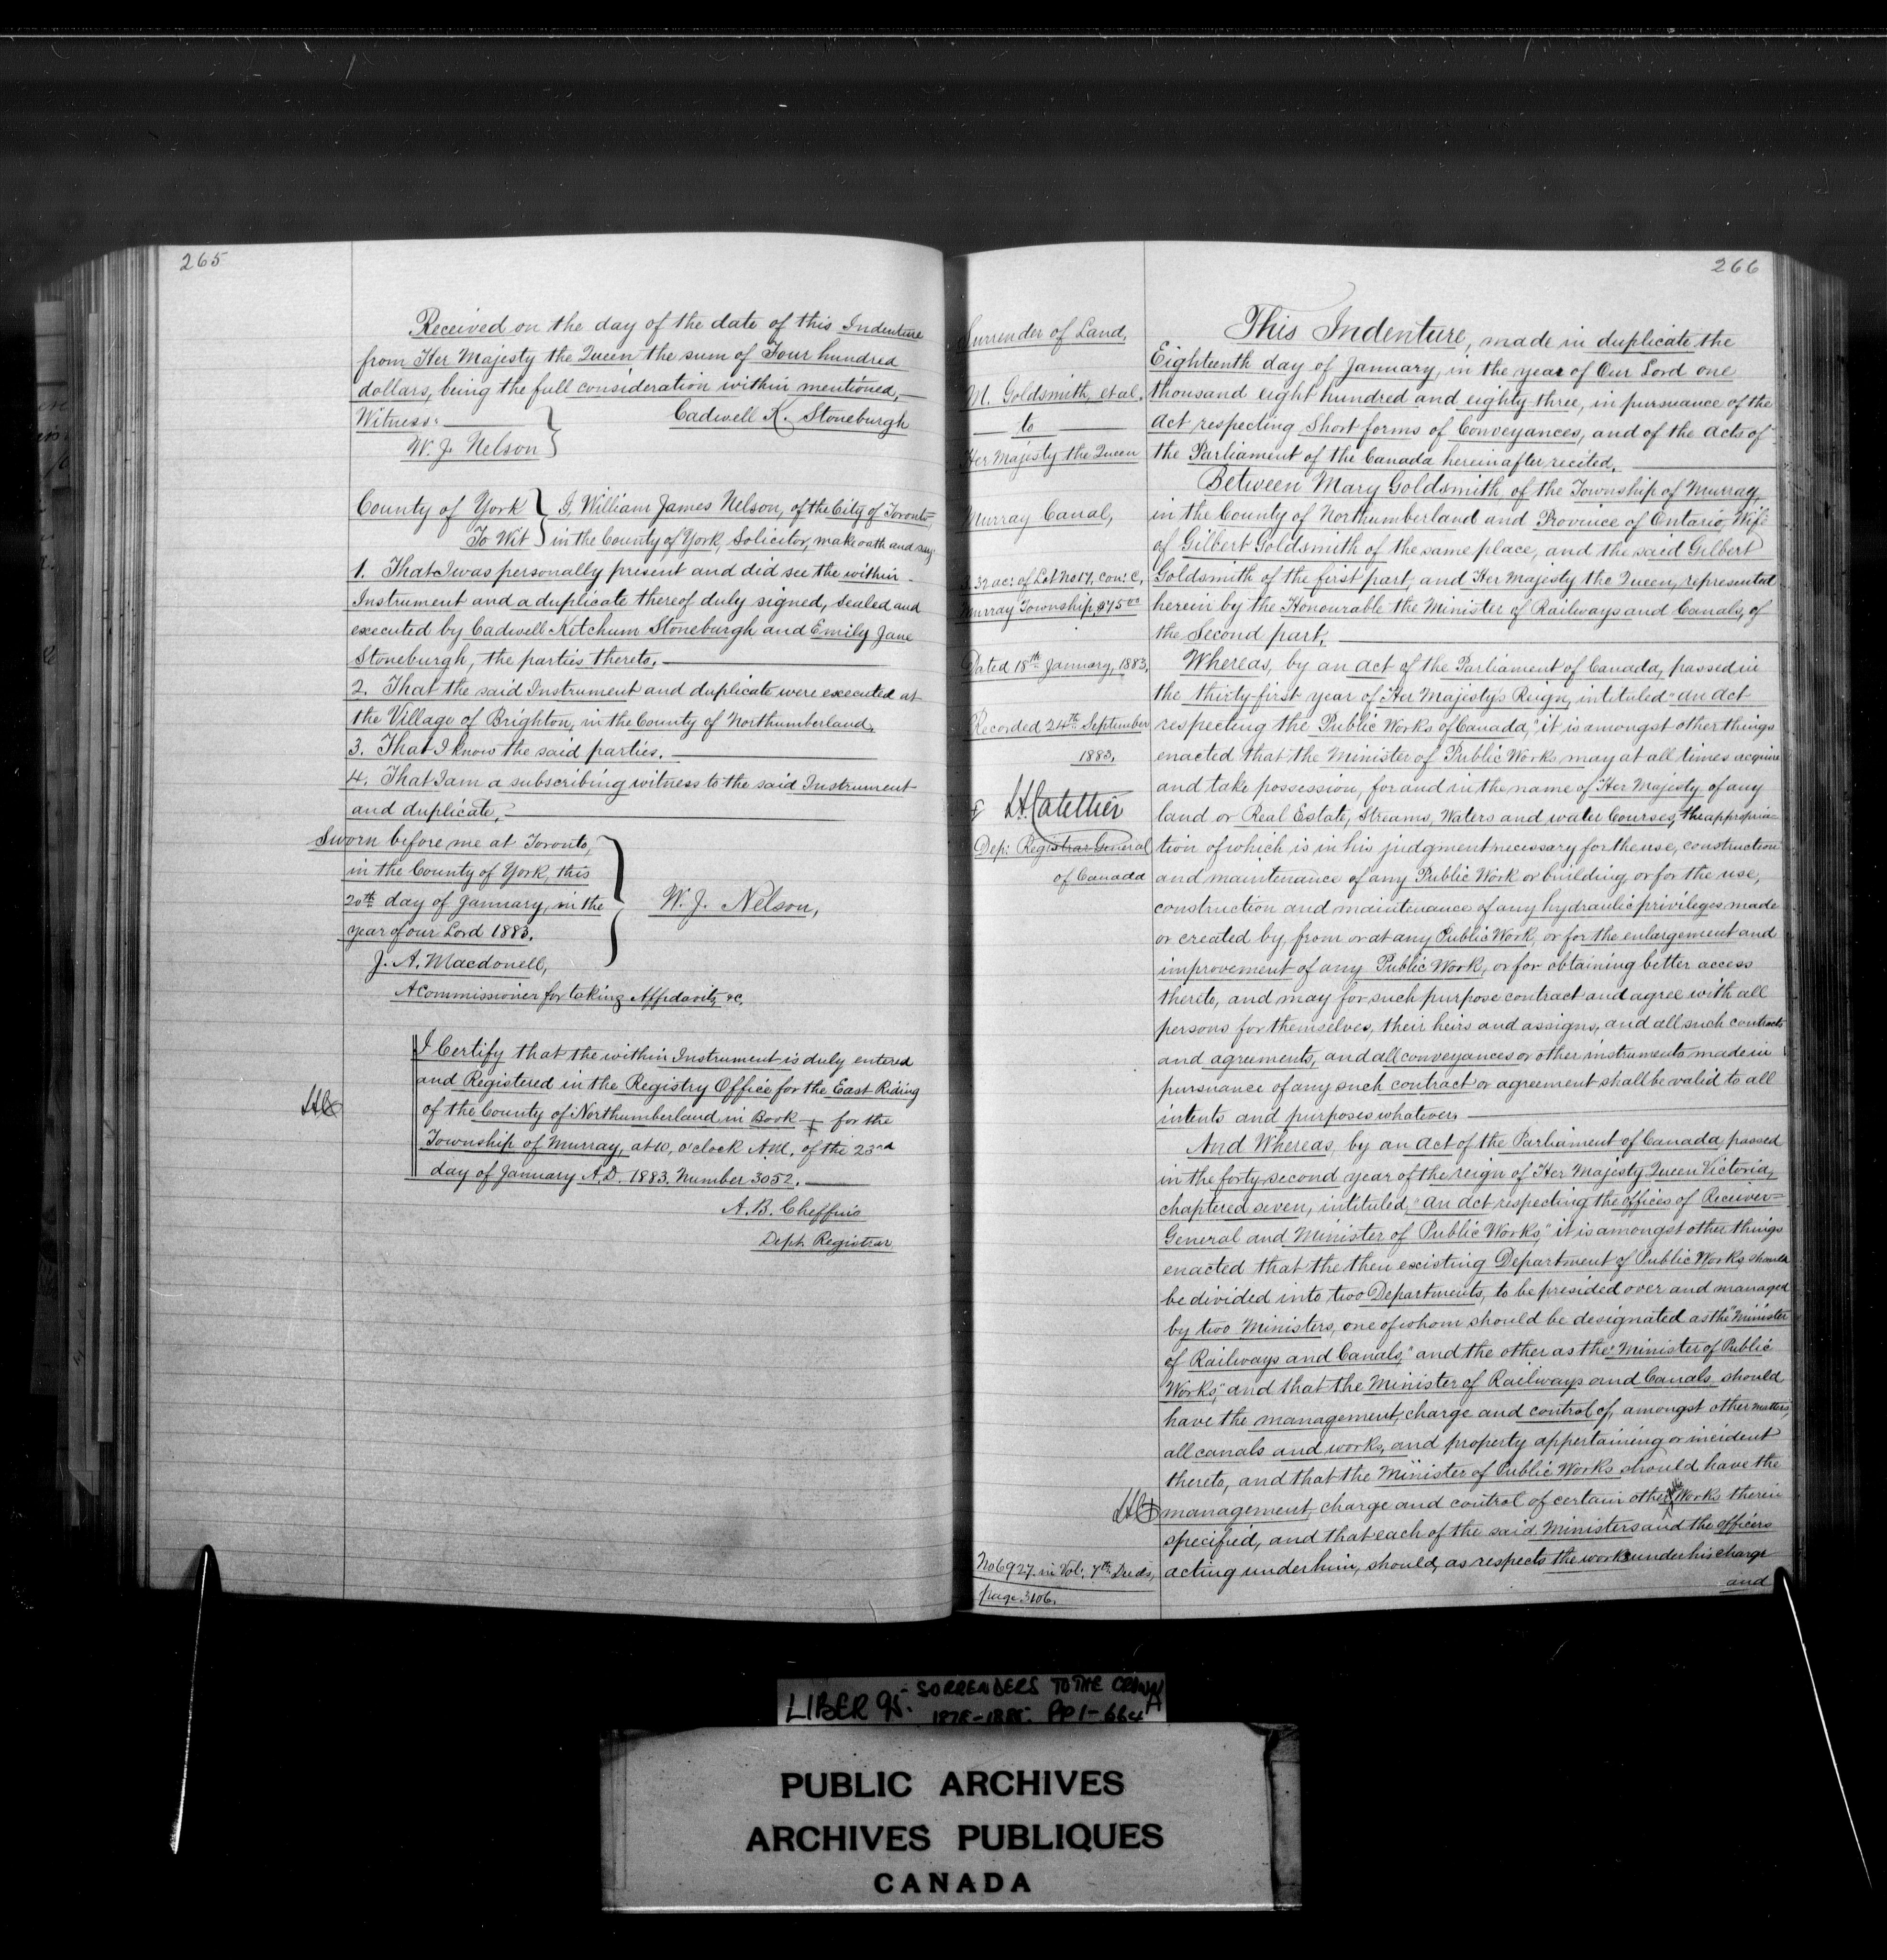 265
Received on the day of the date of this Indenture
from Her Majesty the Queen the sum of Four hundred
dollars, being the full consideration within mentioned,
Witness:
Cadwell K. Stoneburgh
W. J. Nelson
County of York
To Wit
I, William James Nelson, of the City of Toronto,
in the County of York, Solicitor, make oath and say
1. That I was personally present and did see the within
Instrument and a duplicate thereof duly signed, sealed and
executed by Cadwell Ketchum Stoneburgh and Emily Jane
Stoneburgh, the parties thereto.
2. That the said Instrument and duplicate were executed at
the Village of Brighton, in the County of Northumberland,
3. That I know the said parties.
4. That I am a subscribing witness to the said Instrument
and duplicate.
Sworn before me at Toronto,
in the County of York, this
20th day of January, in the
year of our Lord 1883.
W. J. Nelson,
J. A. Macdonell,
A Commissioner for taking Affidavits, &c.
I Certify that the within Instrument is duly entered
and Registered in the Registry Office for the East Riding
of the County of Northumberland in Book for the
Township of Murray, at 10, o'clock A.M. of the 23rd
day of January A.D. 1883. Number 3052.
A. B. Cheffins
Dept. Registrar
266
Surrender of Land,
M. Goldsmith, et al.
to
Her Majesty the Queen
Murray Canal,
32 ac: of Lot No 17, con: C,
Murray Township, $75.00
Dated 18th January, 1883.
Recorded 24th September
1883.
Dep: Registrar General
of Canada
No 6927 in Vol. 7th Deeds,
page 3106.
This Indenture, made in duplicate the
Eighteenth day of January, in the year of Our Lord one
thousand eight hundred and eighty-three, in pursuance of the
Act respecting Short forms of Conveyances, and of the Acts of
the Parliament of the Canada hereinafter recited,
Between Mary Goldsmith, of the Township of Murray,
in the County of Northumberland and Province of Ontario, Wife
of Gilbert Goldsmith of the same place, and the said Gilbert
Goldsmith of the first part, and Her Majesty the Queen, represented
herein by the Honourable the Minister of Railways and Canals, of
the Second part,
Whereas, by an Act of the Parliament of Canada, passed in
the thirty-first year of Her Majesty's Reign, intituled "An Act
respecting the Public Works of Canada," it is amongst other things
enacted that the Minister of Public Works may at all times acquire
and take possession, for and in the name of Her Majesty of any
land or Real Estate, Streams, Waters and water Courses, the appropria-
tion of which is in his judgment necessary for the use, construction
and maintenance of any Public Work or building, or for the use,
construction and maintenance of any hydraulic privileges made
or created by, from or at any Public Work, or for the enlargement and
improvement of any Public Work, or for obtaining better access
thereto, and may for such purpose contract and agree with all
persons for themselves, their heirs and assigns, and all such contracts
and agreements, and all conveyances or other instruments made in
pursuance of any such contract or agreement shall be valid to all
intents and purposes whatever.
And Whereas, by an Act of the Parliament of Canada, passed
in the forty-second year of the reign of Her Majesty Queen Victoria,
chaptered seven, intituled, "An Act respecting the offices of Receiver-
General and Minister of Public Works," it is amongst other things
enacted that the then existing Department of Public Works should
be divided into two Departments, to be presided over and managed
by two Ministers, one of whom should be designated as the "Minister
of Railways and Canals," and the other as the "Minister of Public
Works," and that the Minister of Railways and Canals should
have the management, charge and control of, amongst other matters,
all canals and works, and property appertaining or incident
thereto, and that the Minister of Public Works should have the
management, charge and control of certain other Works therein
specified, and that each of the said Ministers and the officers
acting under him, should, as respects the works under his charge
and
LIBER 95: SURRENDERS TO THE CROWN
1878-1885. PP 1-664
PUBLIC ARCHIVES
ARCHIVES PUBLIQUES
CANADA